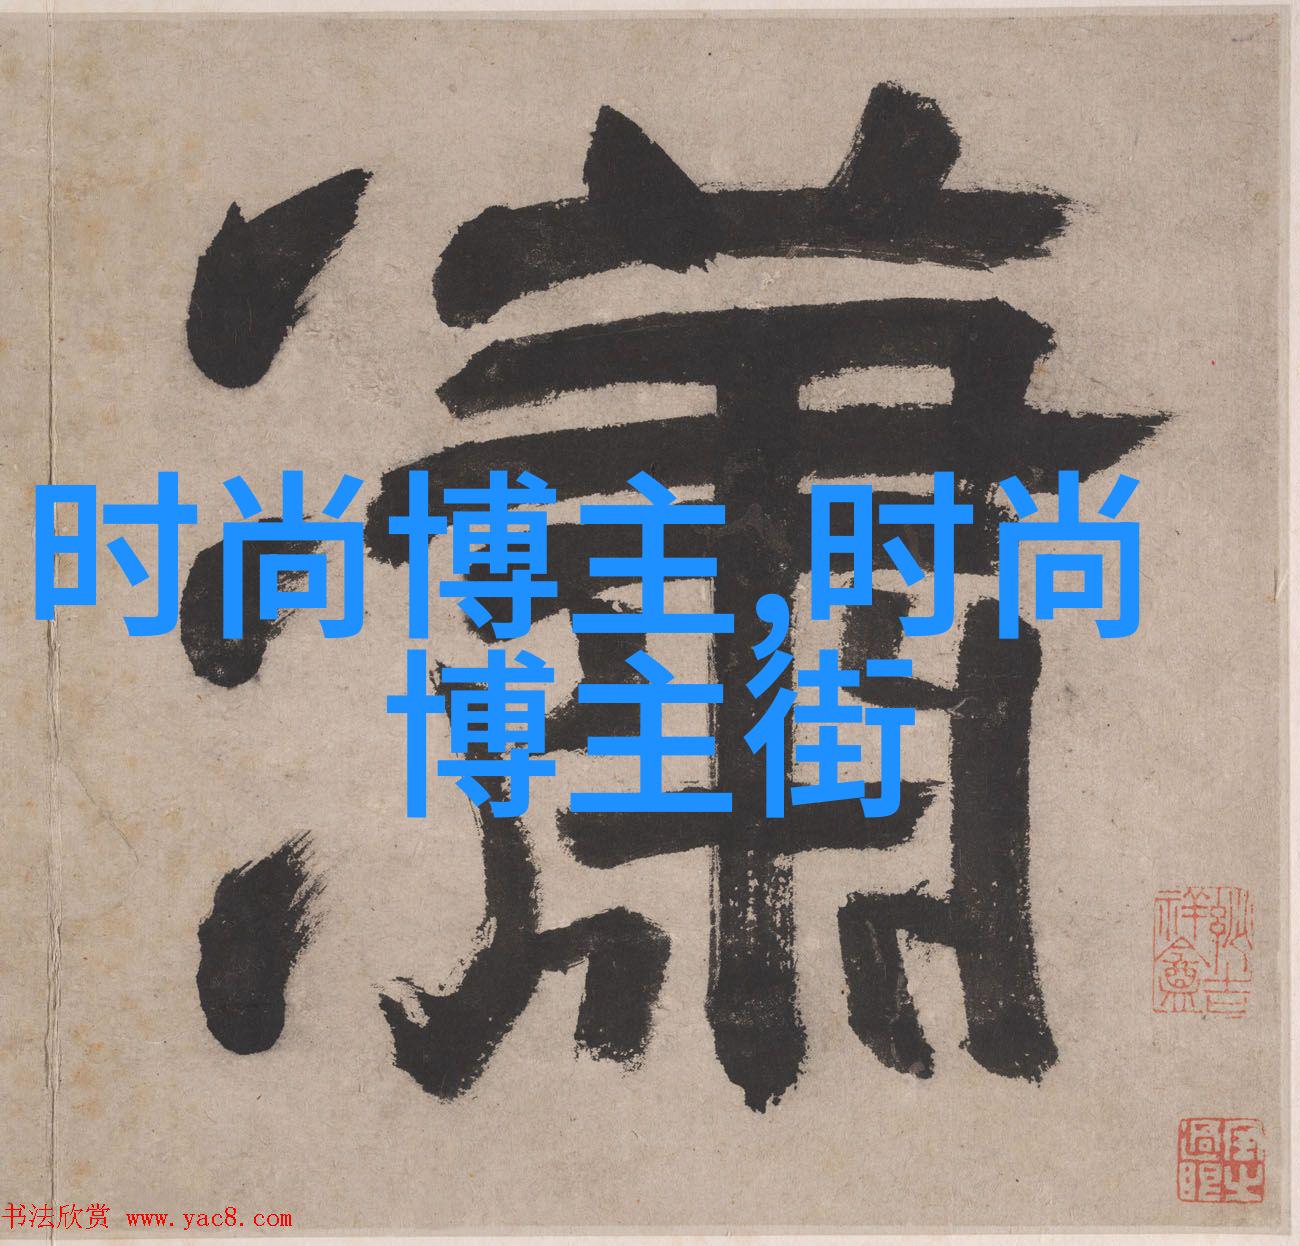 瀟
时尚博主,时尚
博主街
书法欣赏 www.yac8.com